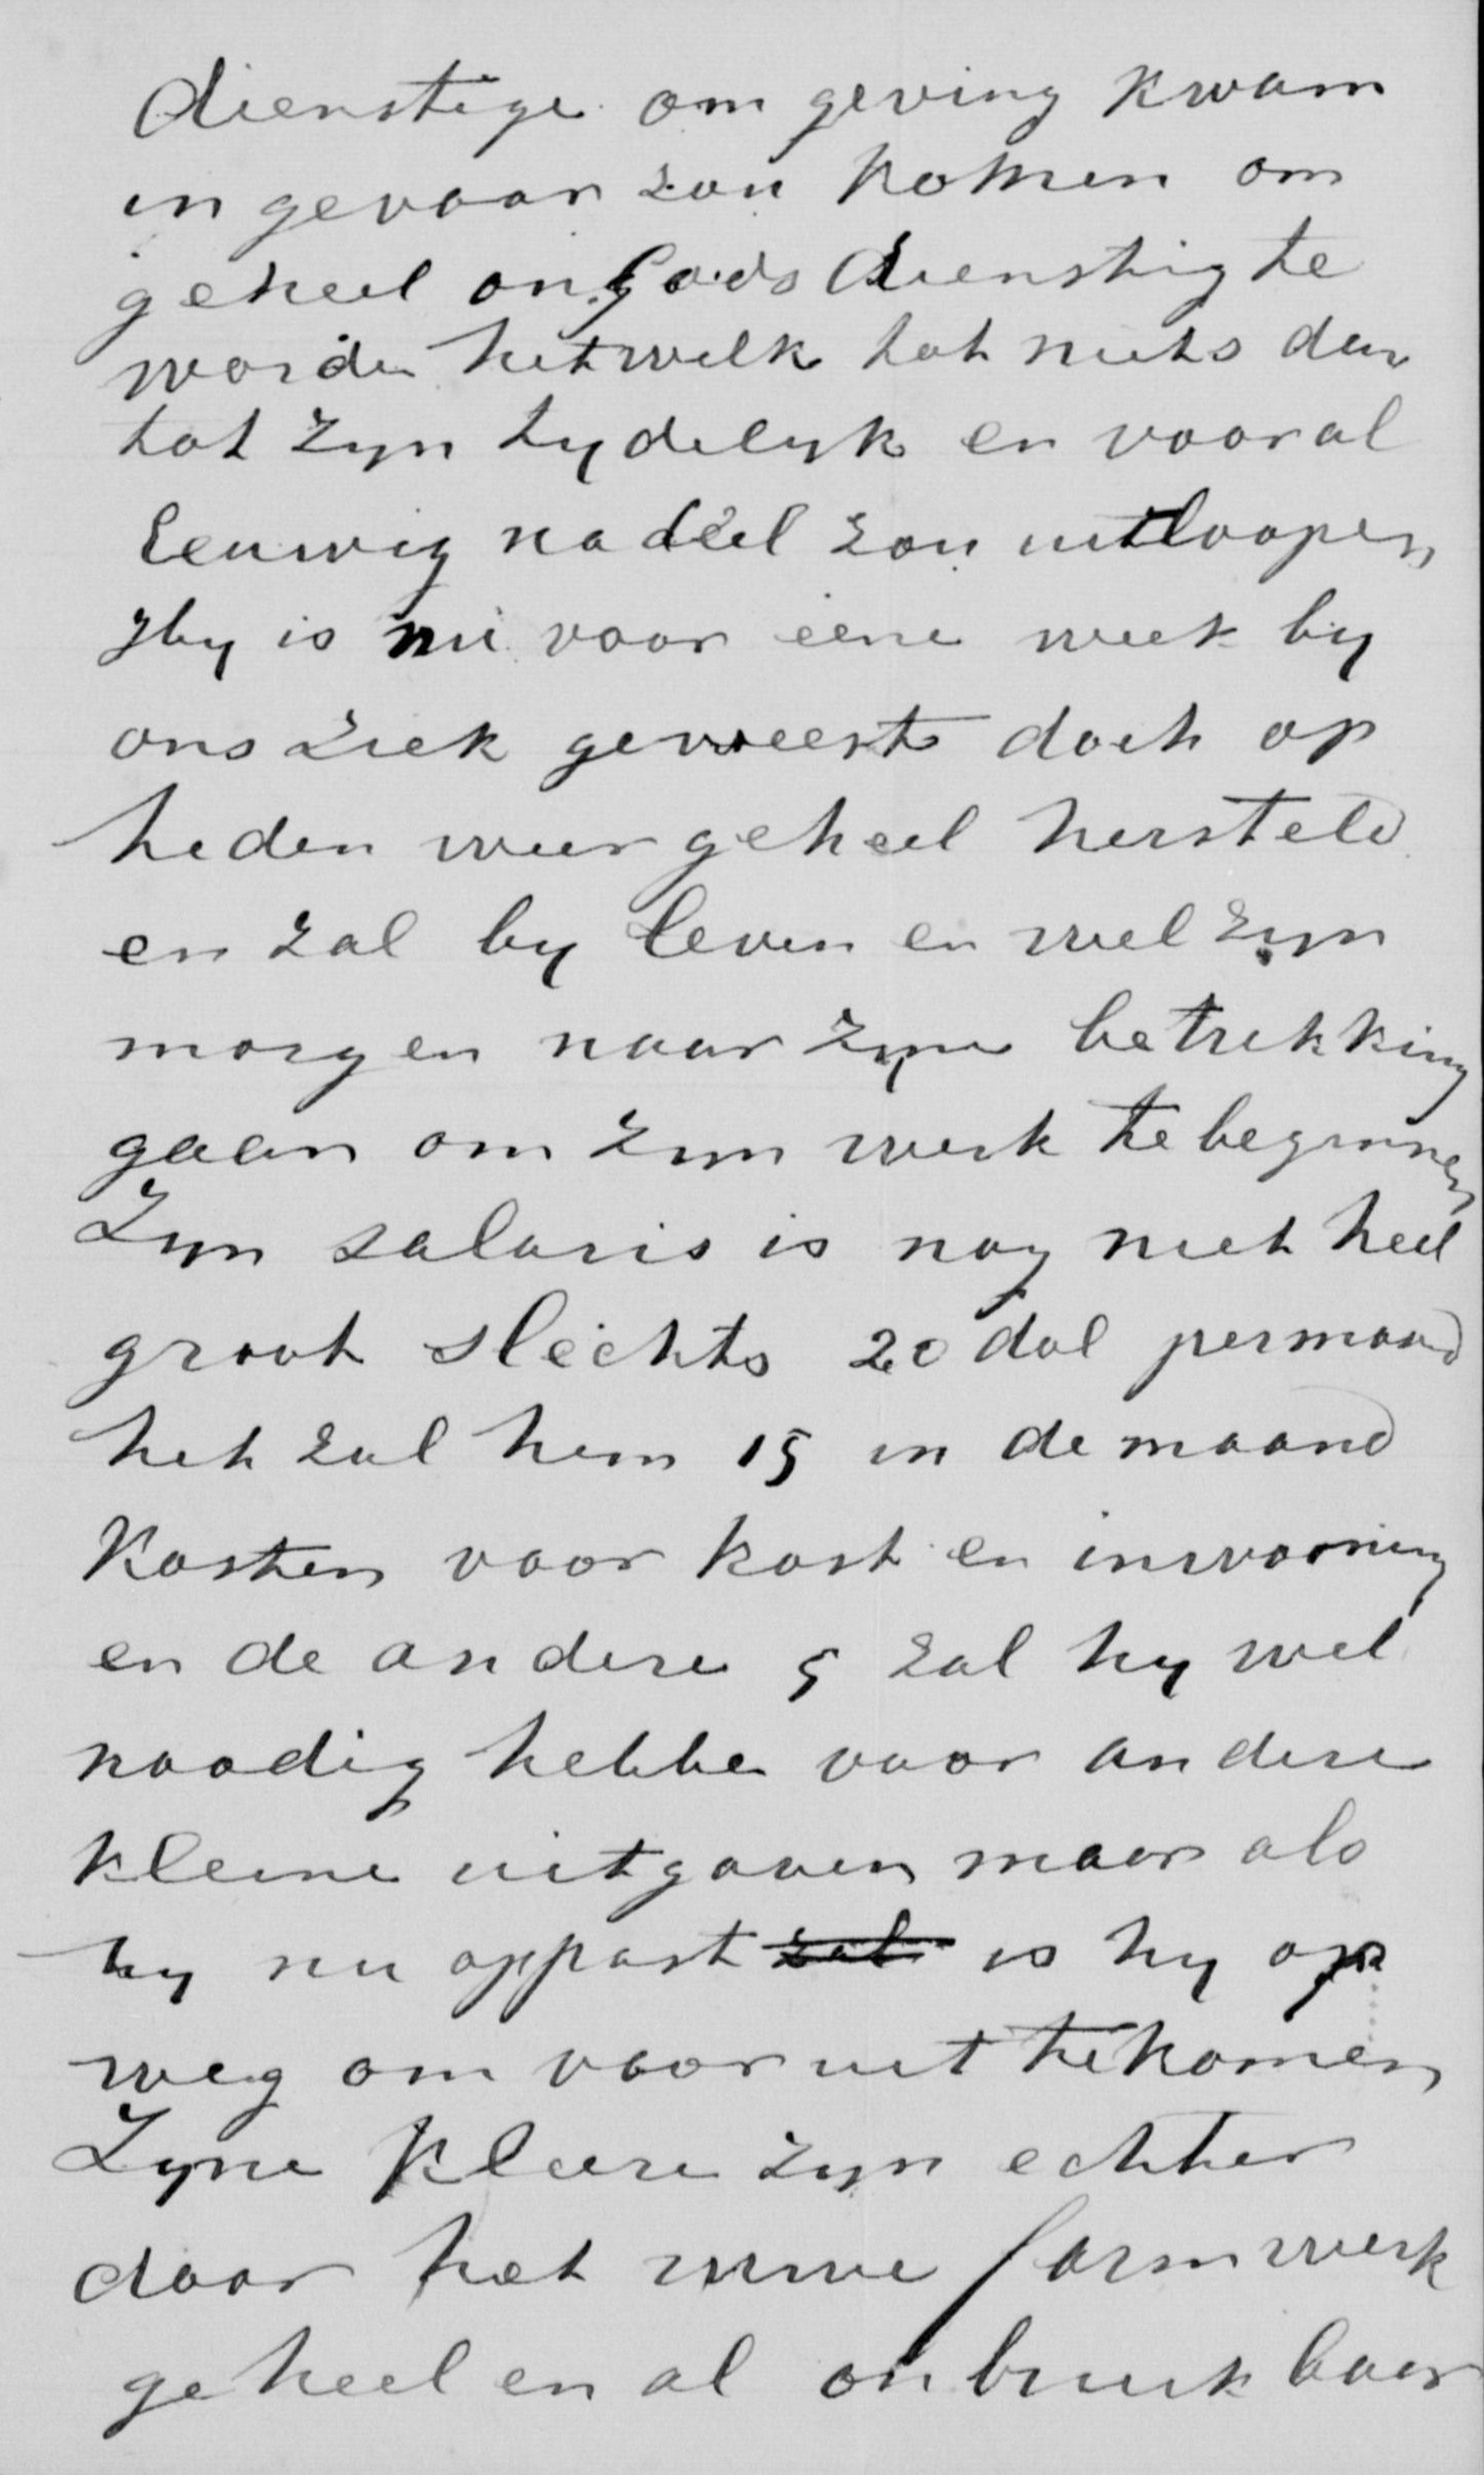 dienstige om geving kwam
in gevaar zou komen om
geheel on Gods dienstig te
worden hetwelk tot niets dan
tot zyn tydelyk en vooral
Eeuwig nadeel zou uitloopen
Hy is nu voor eene week by
ons ziek geweest doch op
heden weer geheel hersteld
en zal by leven en wel zyn
morgen naar zyne betrekking
gaan om zyn werk te beginnen
Zyn salaris is nog niet heel
groot slechts 20 dol per maand
het zal hem 15 in de maand
kosten voor kost en inwooning
en de andere 5 zal hy wel
noodig hebbe voor andere
kleine uitgaven maar als
hy nu oppast zal is hy op
weg om vooruit te komen
Zyne kleere zyn echter
door het ruwe farm werk
geheel en al onbruikbaar